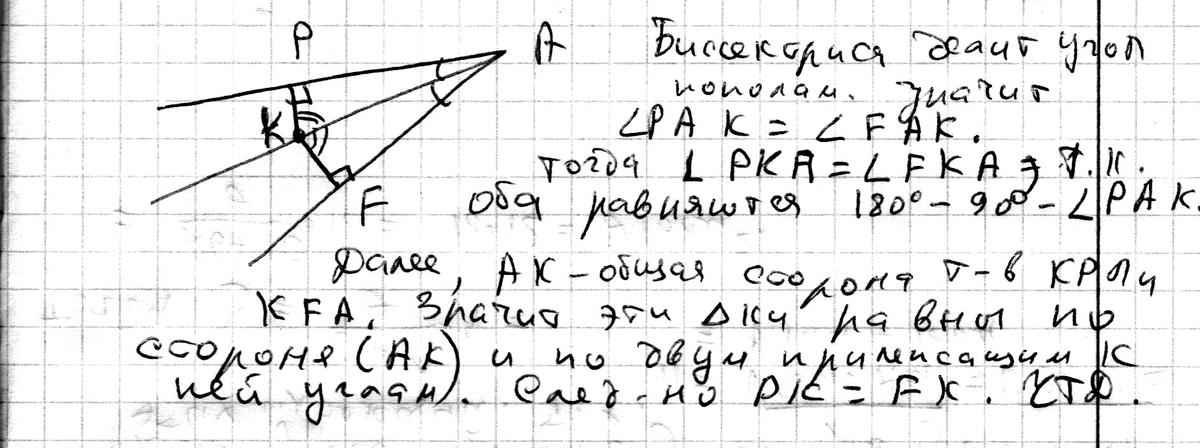 P
A
K
F
Биссектриса делит угол
пополам. Значит
∠PAK = ∠FAK.
тогда ∠PKA = ∠FKA, т.к.
оба равняются 180° - 90° - ∠PAK.
Далее, AK - общая сторона т-в KPA и
KFA. Значит эти Δки равны по
стороня (AK) и по двум прилежащим к
ней углам). След-но PK = FK. ЧТД.